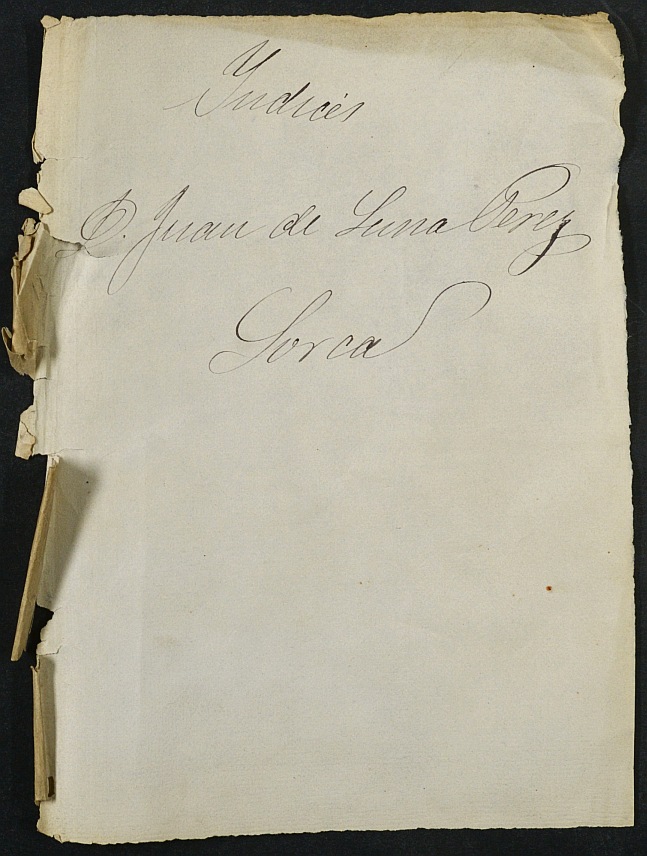 Yndices
D. Juan de Luna Perez
Lorca